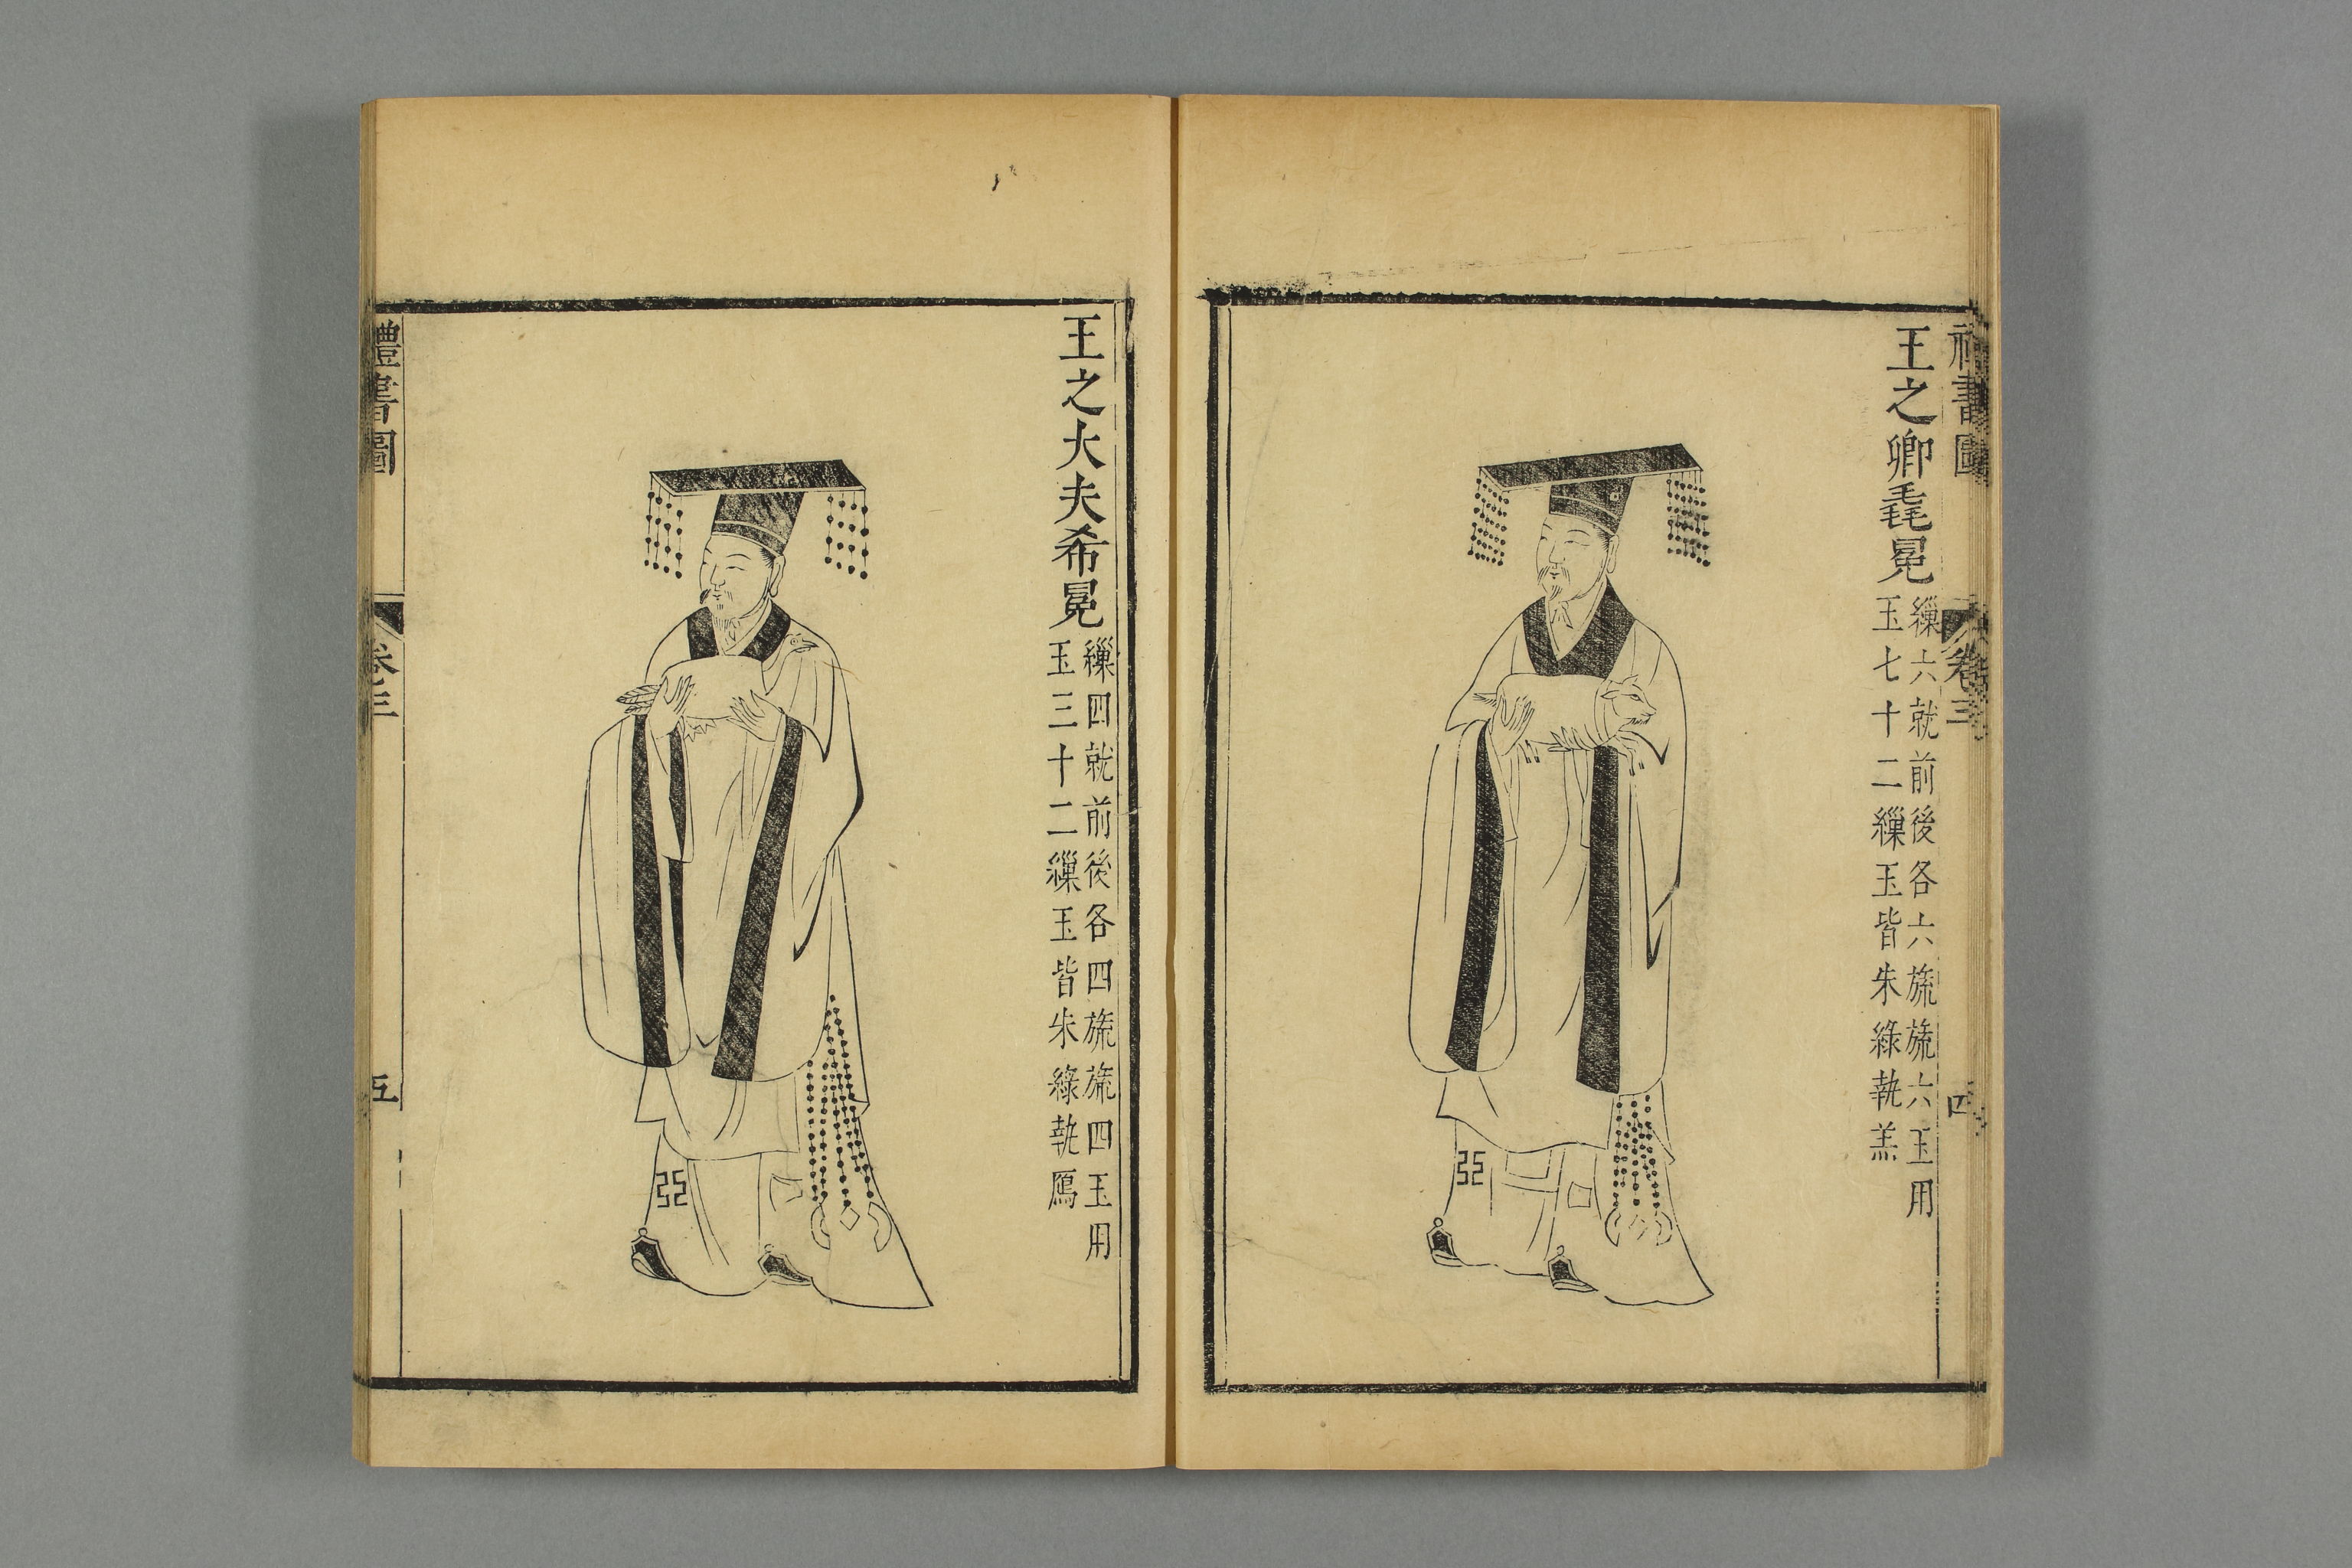 禮書圖
卷三
四
王之卿毳冕
繅六就前後各六旒旒六玉用
玉七十二繅玉皆朱綠執羔
王之大夫希冕
繅四就前後各四旒旒四玉用
玉三十二繅玉皆朱綠執鴈
禮書圖
卷三
五